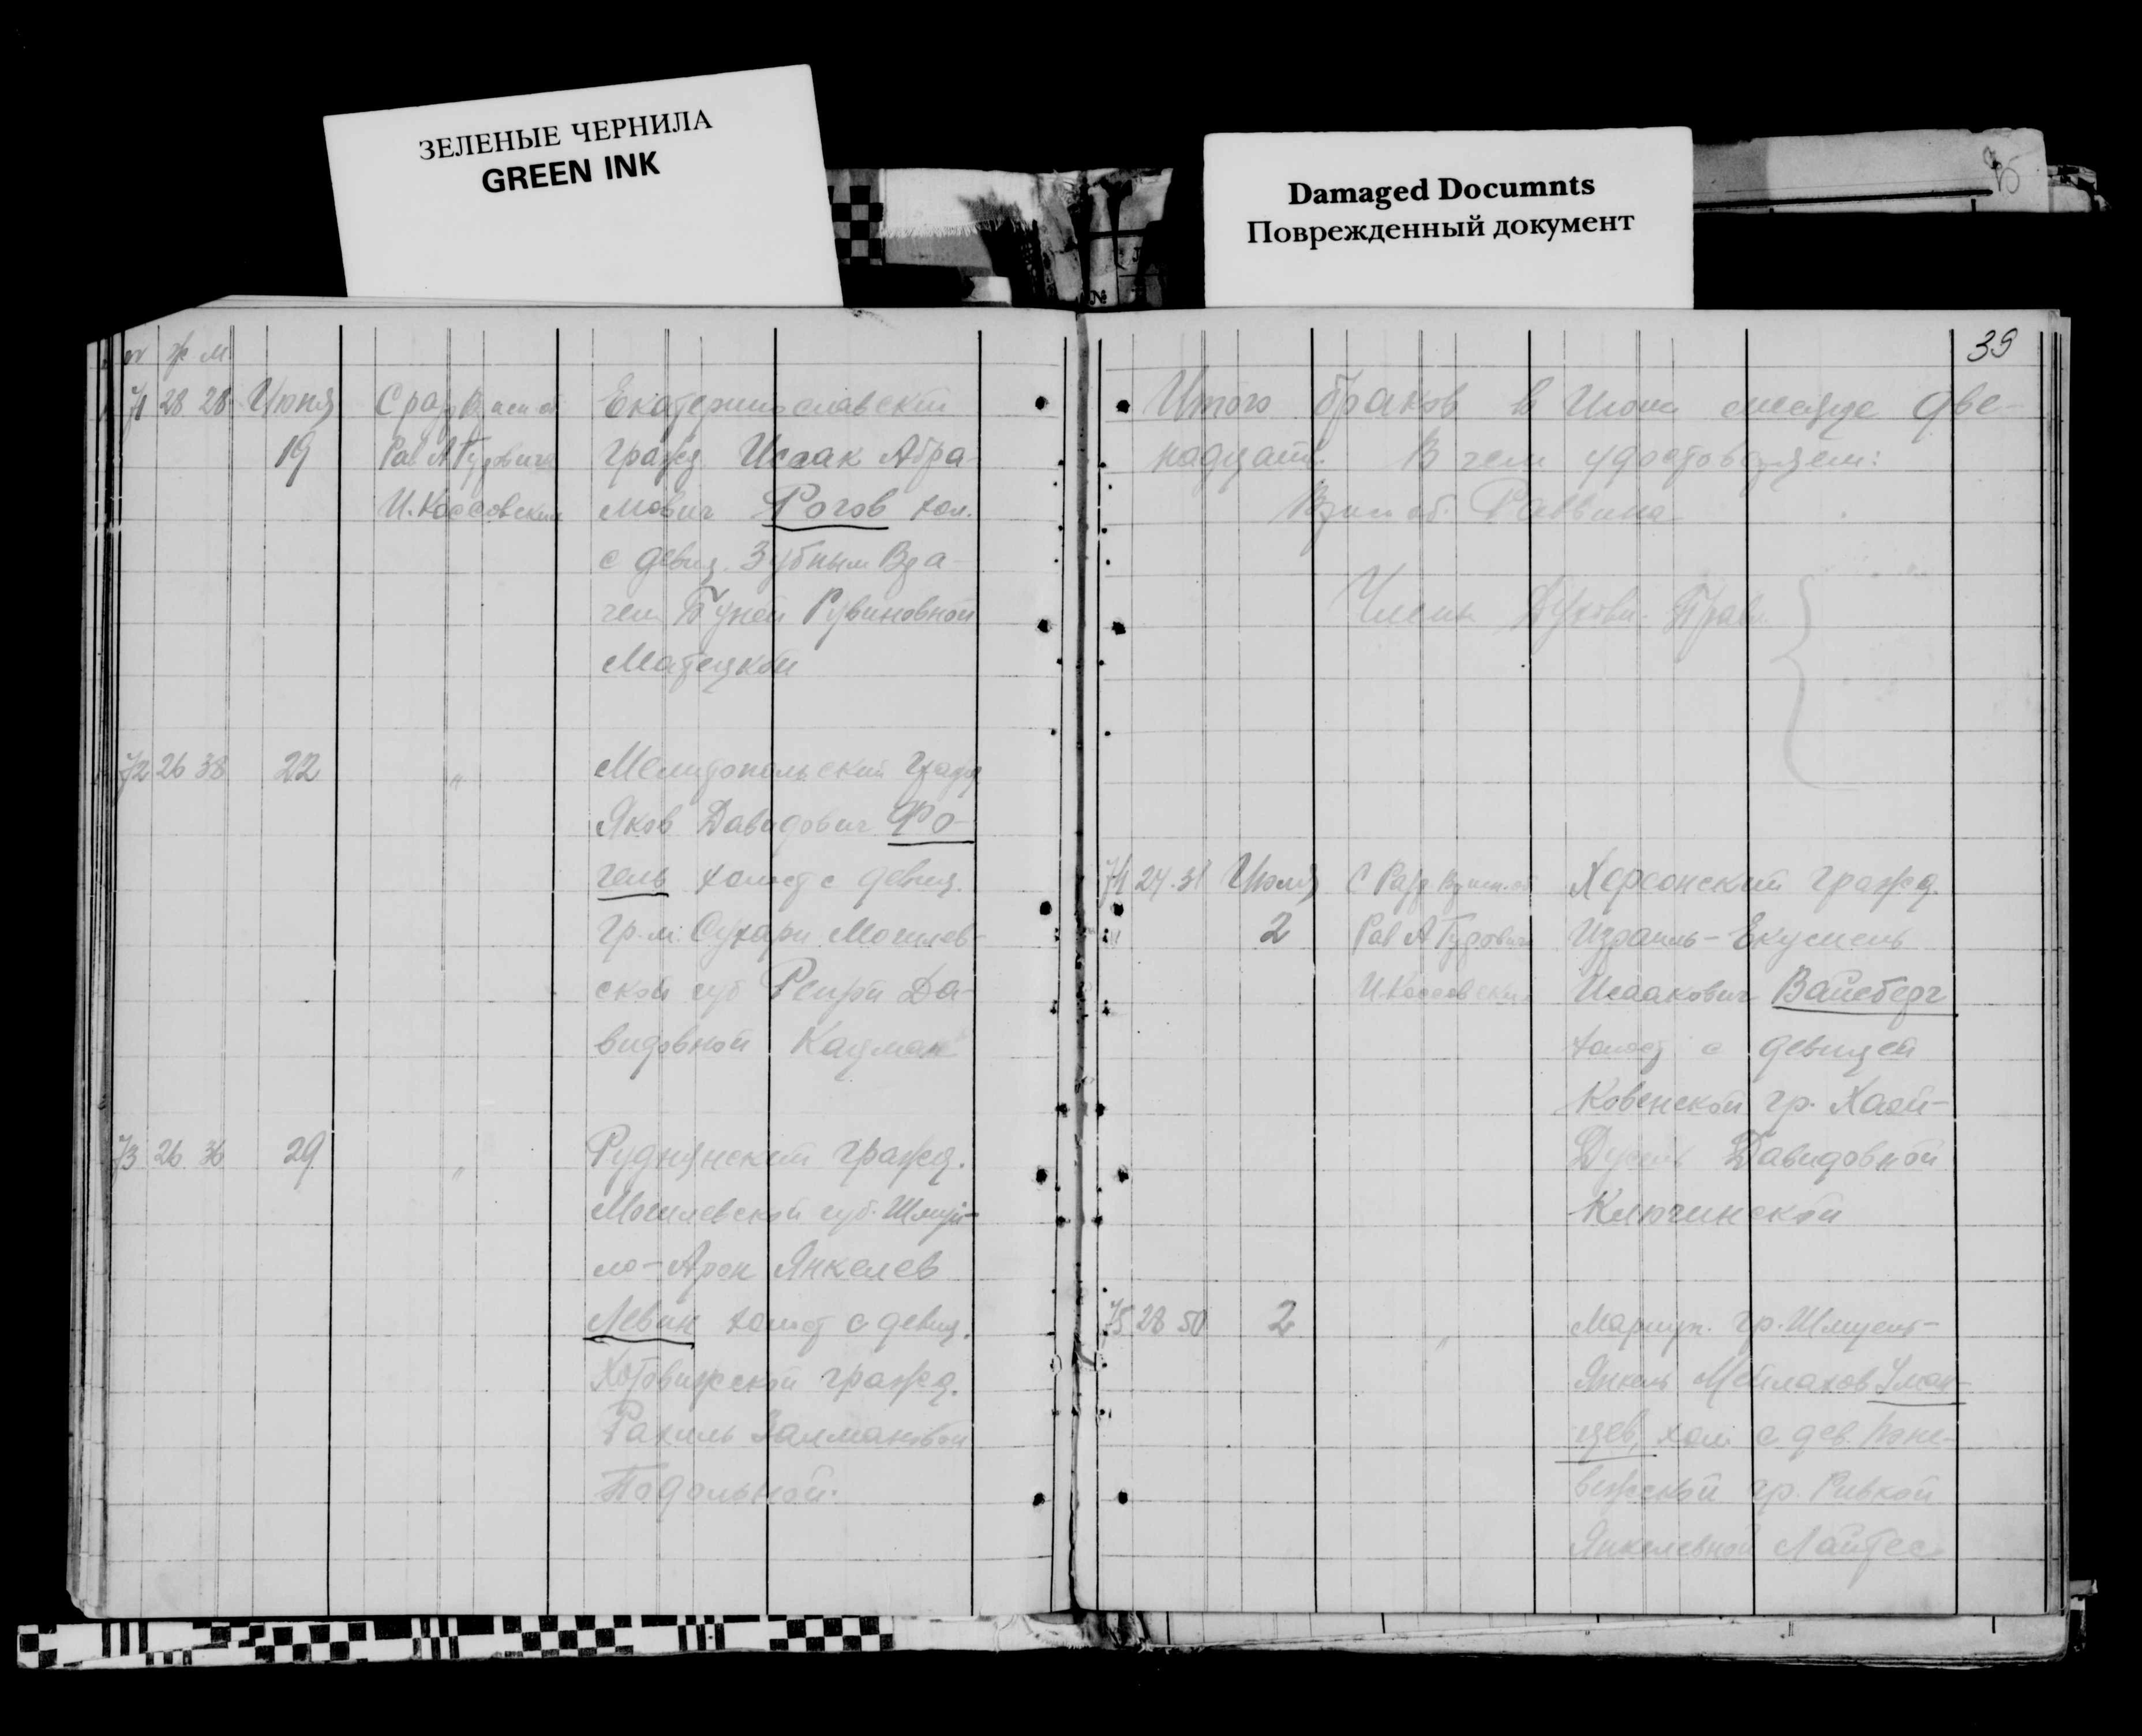 ЗЕЛЕНЫЕ ЧЕРНИЛА
GREEN INK
Damaged Documnts
Поврежденный документ
39
ж м
71 28 28 Июня
19
С разр
Рав А Гурович
И. Коссовский
Екатеринославский
гражд. Исаак Абра-
мович Рогов хол.
с девиц. Зубным Вра-
чем Буней Рувиновной
72 26 38 22 "
Мелитопольский гражд
Яков Давидович Фо-
гель холост с девиц.
гр. м. Сухари Могилев-
ской губ Да-
видовной Кацман
73 26 36 29 "
гражд.
Могилевской губ.
ло-Арон Янкелев
Левин холост с девиц.
Хотовижской гражд.
Рахиль Залмановой
Подольной.
Итого браков в Июне месяце две-
надцать. В чем удостоверяем:
Раввина
Духовн. Прав.
74 24 31 Июля
2
С Разр
Рав А Гурович
И. Коссовский
Херсонский гражд.
Израиль-Екусиель
Исаакович Вайсберг
холост с девицей
Ковенской гр. Хаей-
Давидовной
Ключинской
75 28 50 2 "
Мариуп. гр.
Янкель Мейлахов Уман-
цев, хол. с дев. Поне-
вежской гр. Ривкой
Янкелевной